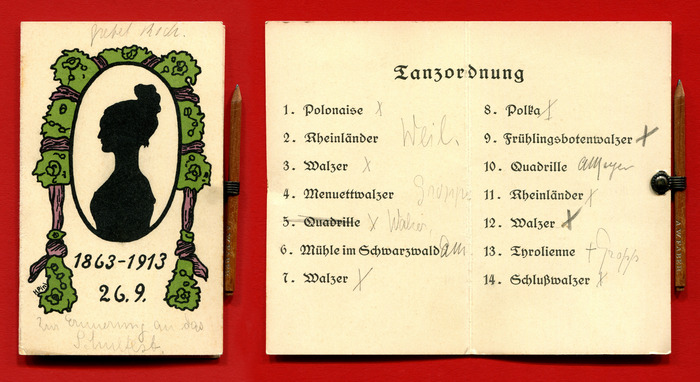 1863-1913
26.9.
Zur Erinnerung an das
Schulfest.
Tanzordnung
1. Polonaise x
2. Rheinländer Weil.
3. Walzer x
4. Menuettwalzer
5. Quadrille x Walzer
6. Mühle im Schwarzwald am
7. Walzer x
8. Polka x
9. Frühlingsbotenwalzer x
10. Quadrille
11. Rheinländer x
12. Walzer x
13. Tyrolienne + Gropp
14. Schlußwalzer x
A.W. FABER